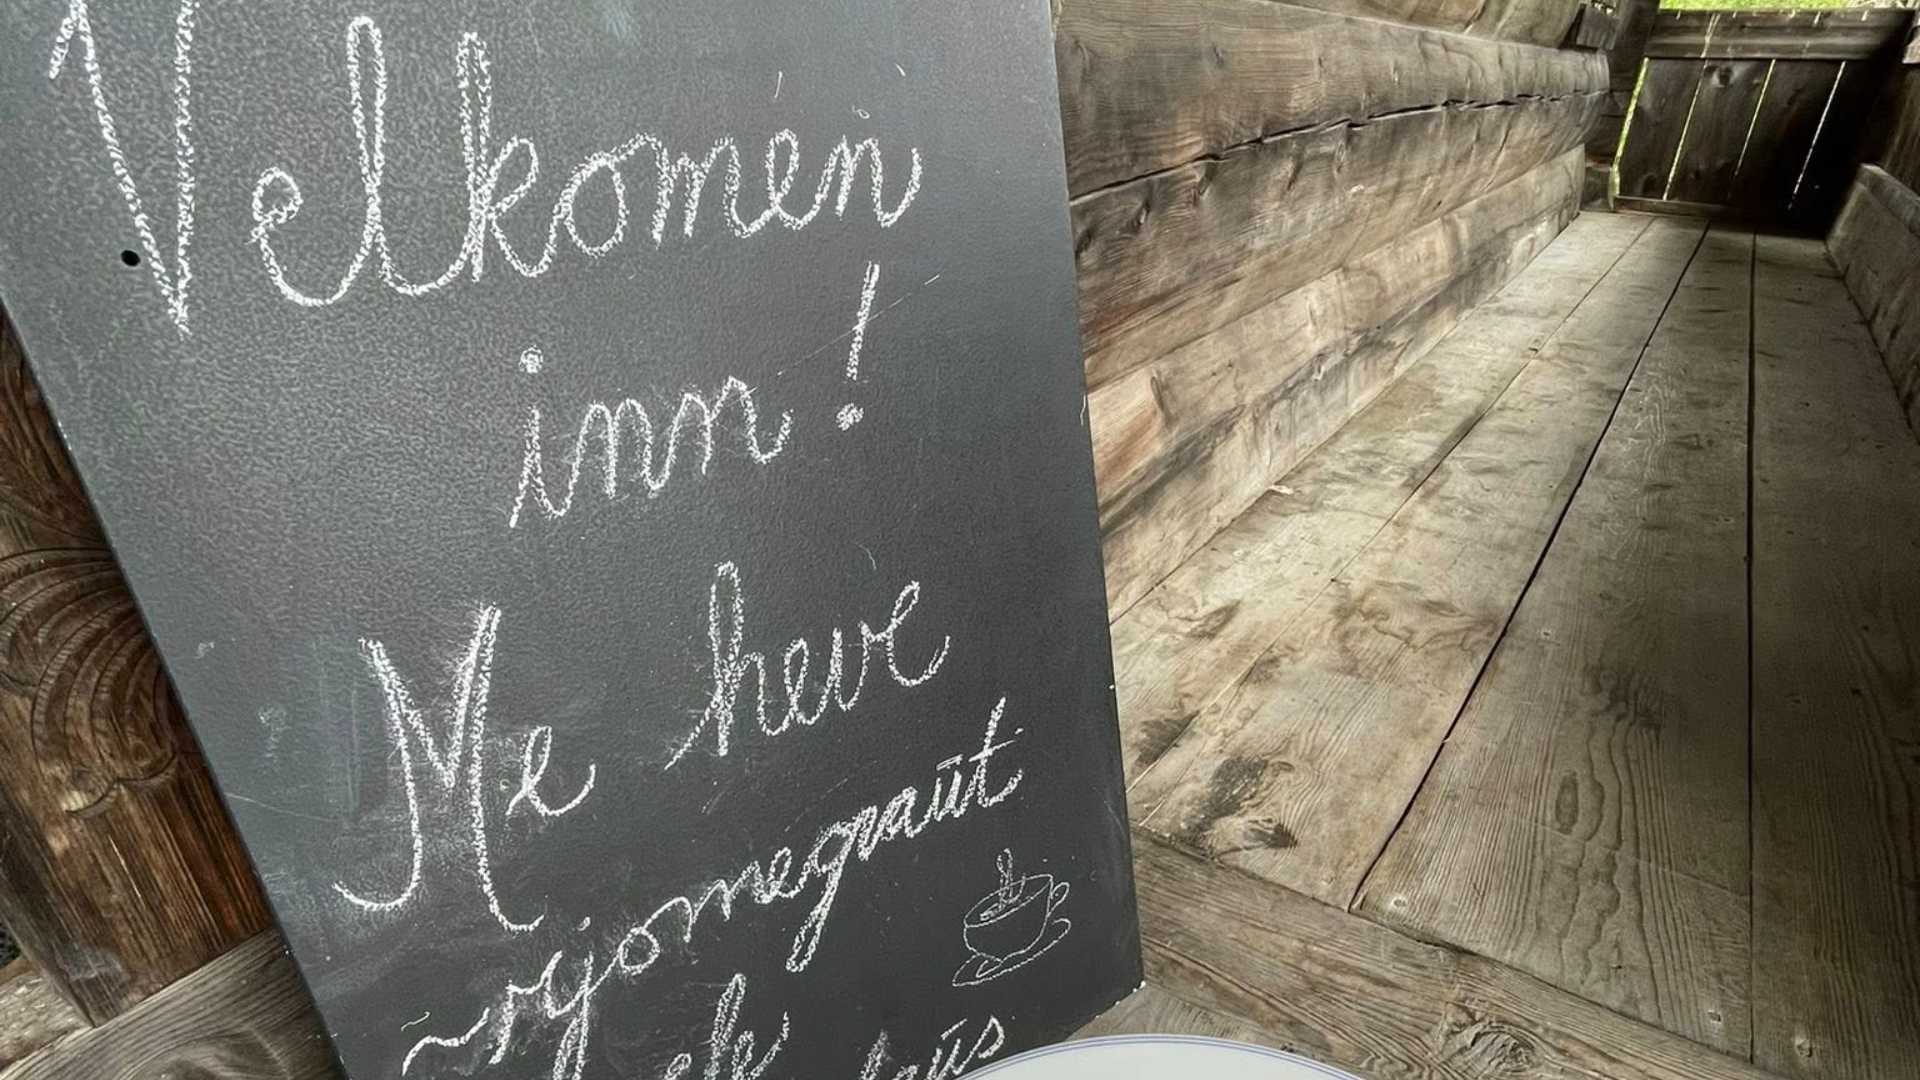 Velkomen
inn!
Me heve
rjomegraut